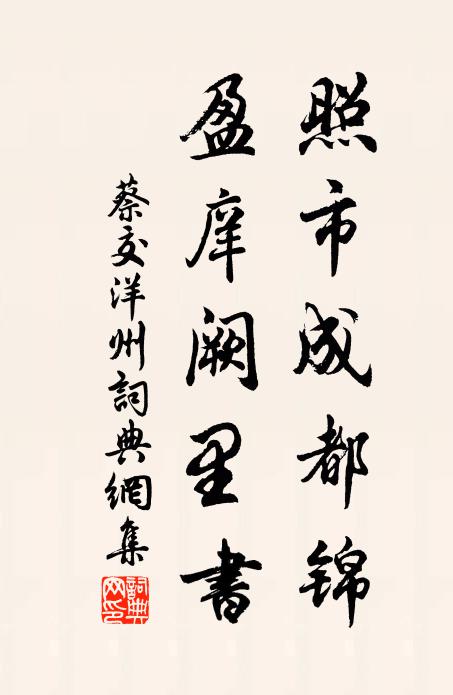 照市成都锦
盈庠阙里書
蔡交洋州詞典網集
詞典
网印